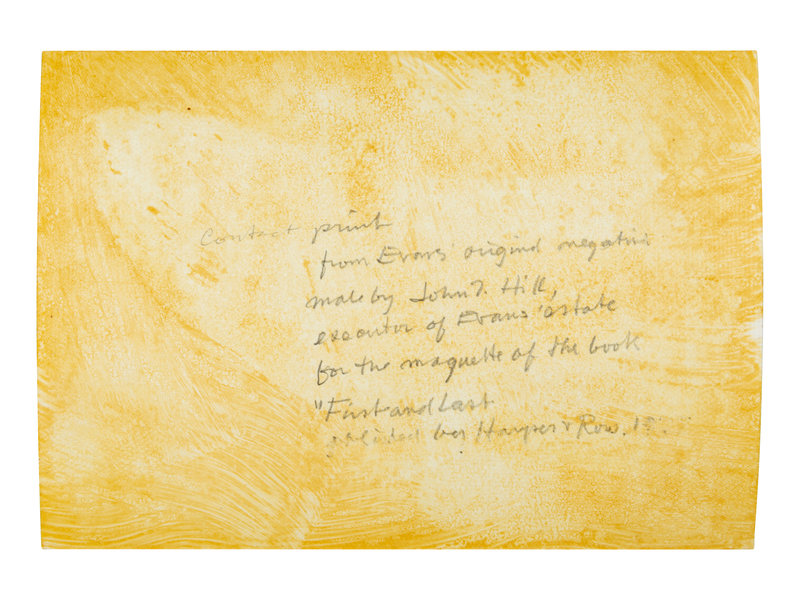 Contact print
from Evans' original negative
made by John T. Hill,
executor of Evans' estate
for the maquette of the book
"First and Last
by Harper & Row.